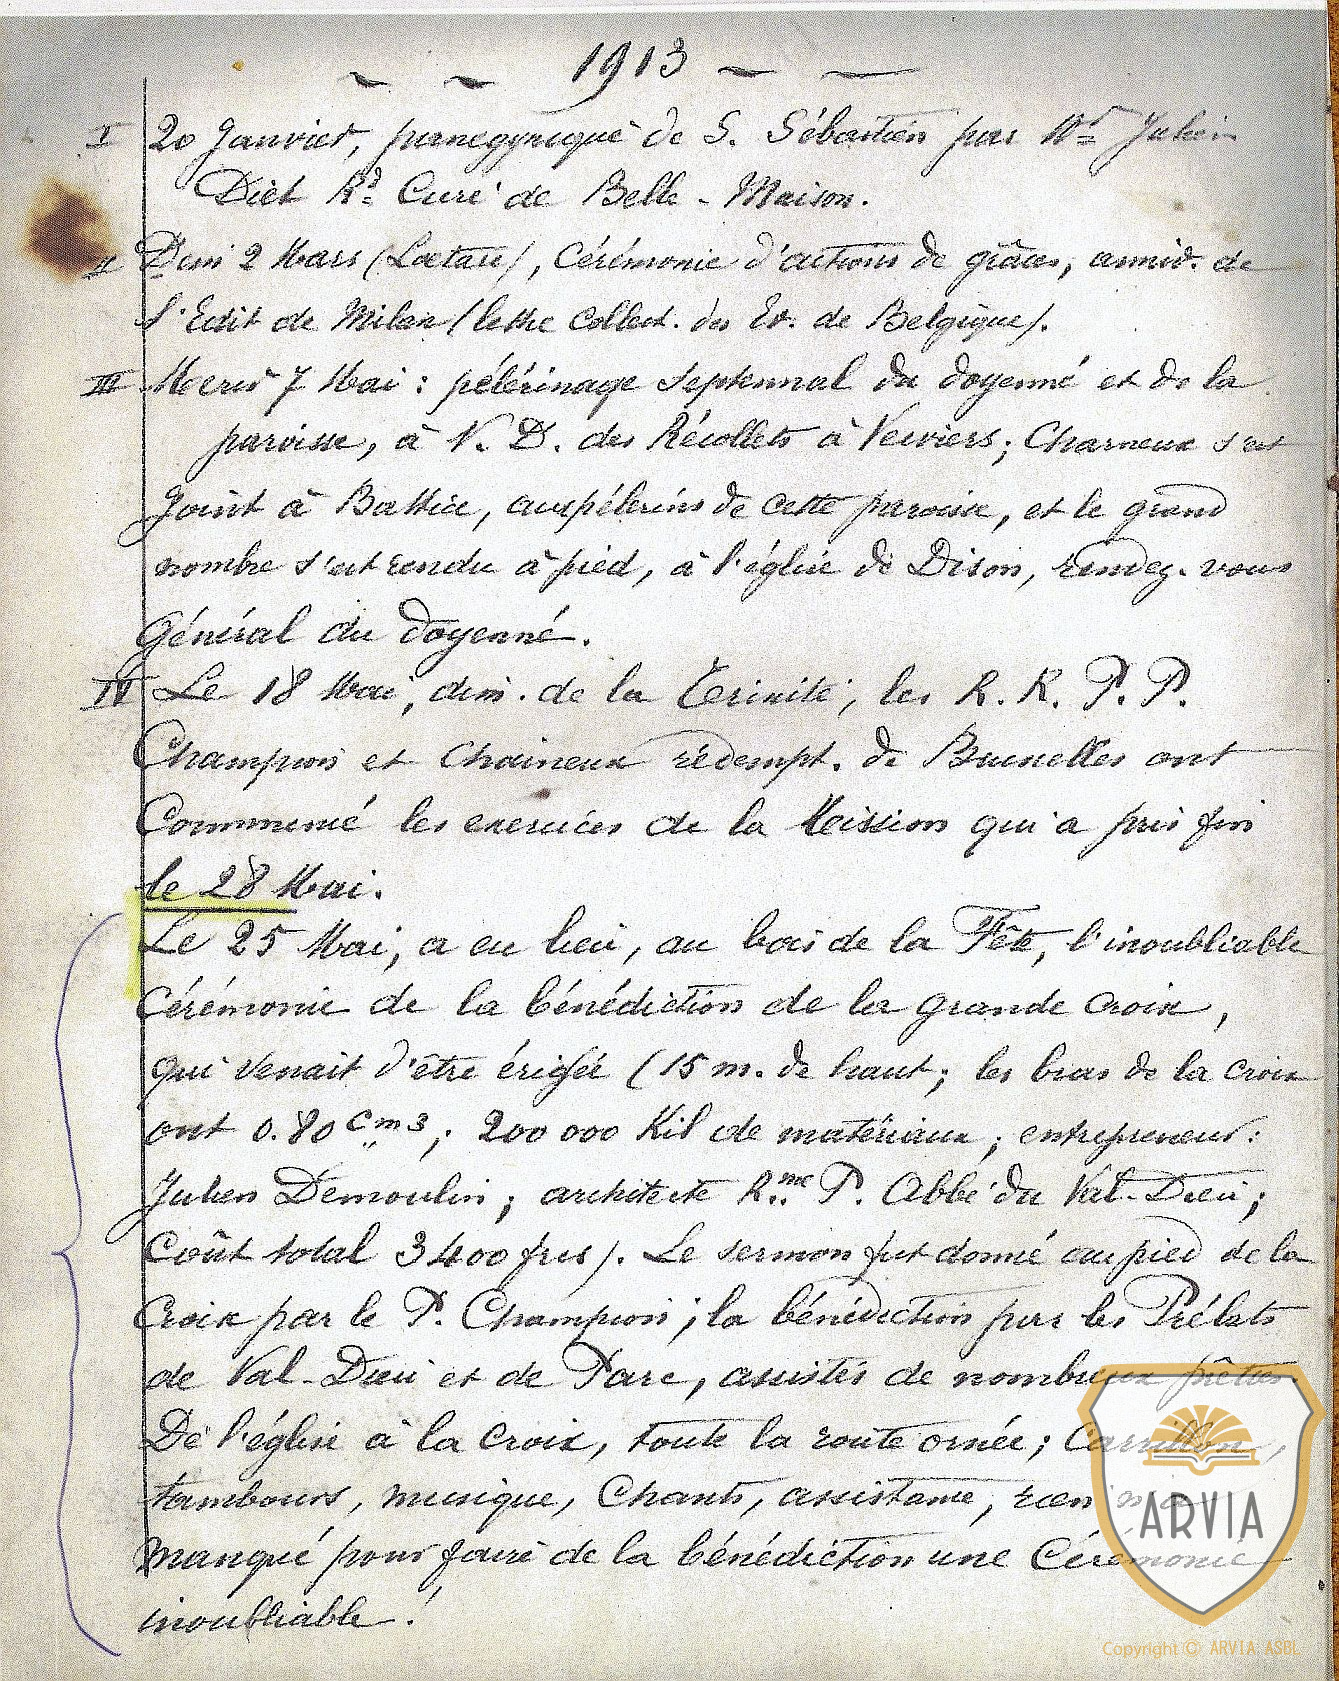 1913
I 20 Janvier, panegyrique de S. Sébastien par Mr Julien
Dièt Rd Curé de Belle-Maison.
II Dim 2 Mars (Laetare), Cérémonie d'actions de grâces, anniv. de
l'Edit de Milan (lettre Collect. des Ev. de Belgique).
III Mercr 7 Mai : pélérinage Septennal du doyenné et de la
paroisse, à N. D. des Récollets à Verviers; Charneux s'est
joint à Battice, aux pélerins de cette paroisse, et le grand
nombre s'est rendu à pied, à l'église de Dison, rendez-vous
Général du doyenné.
IV Le 18 Mai, dim. de la Trinité, les R. R. P. P.
Champion et Chaineux rédempt. de Bruxelles ont
Commencé les exercices de la Mission qui a pris fin
le 28 Mai.
Le 25 Mai, a eu lieu, au bois de la Fête, l'inoubliable
Cérémonie de la bénédiction de la grande Croix,
qui venait d'être érigée (15 m. de haut; les bras de la croix
ont 0.80 cm3; 200 000 Kil de matériaux; entrepreneur:
Julien Demoulin; architecte R.me P. Abbé du Val-Dieu;
Coût total 3400 frcs). Le sermon fut donné au pied de la
Croix par le P. Champion; la bénédiction par les Prélats
de Val-Dieu et de Parc, assistés de nombreux prêtres
De l'église à la Croix, toute la route ornée; Carrillon,
tambours, musique, Chants, assistance, rien n'a
manqué pour faire de la bénédiction une Cérémonie
inoubliable !
ARVIA
Copyright © ARVIA ASBL